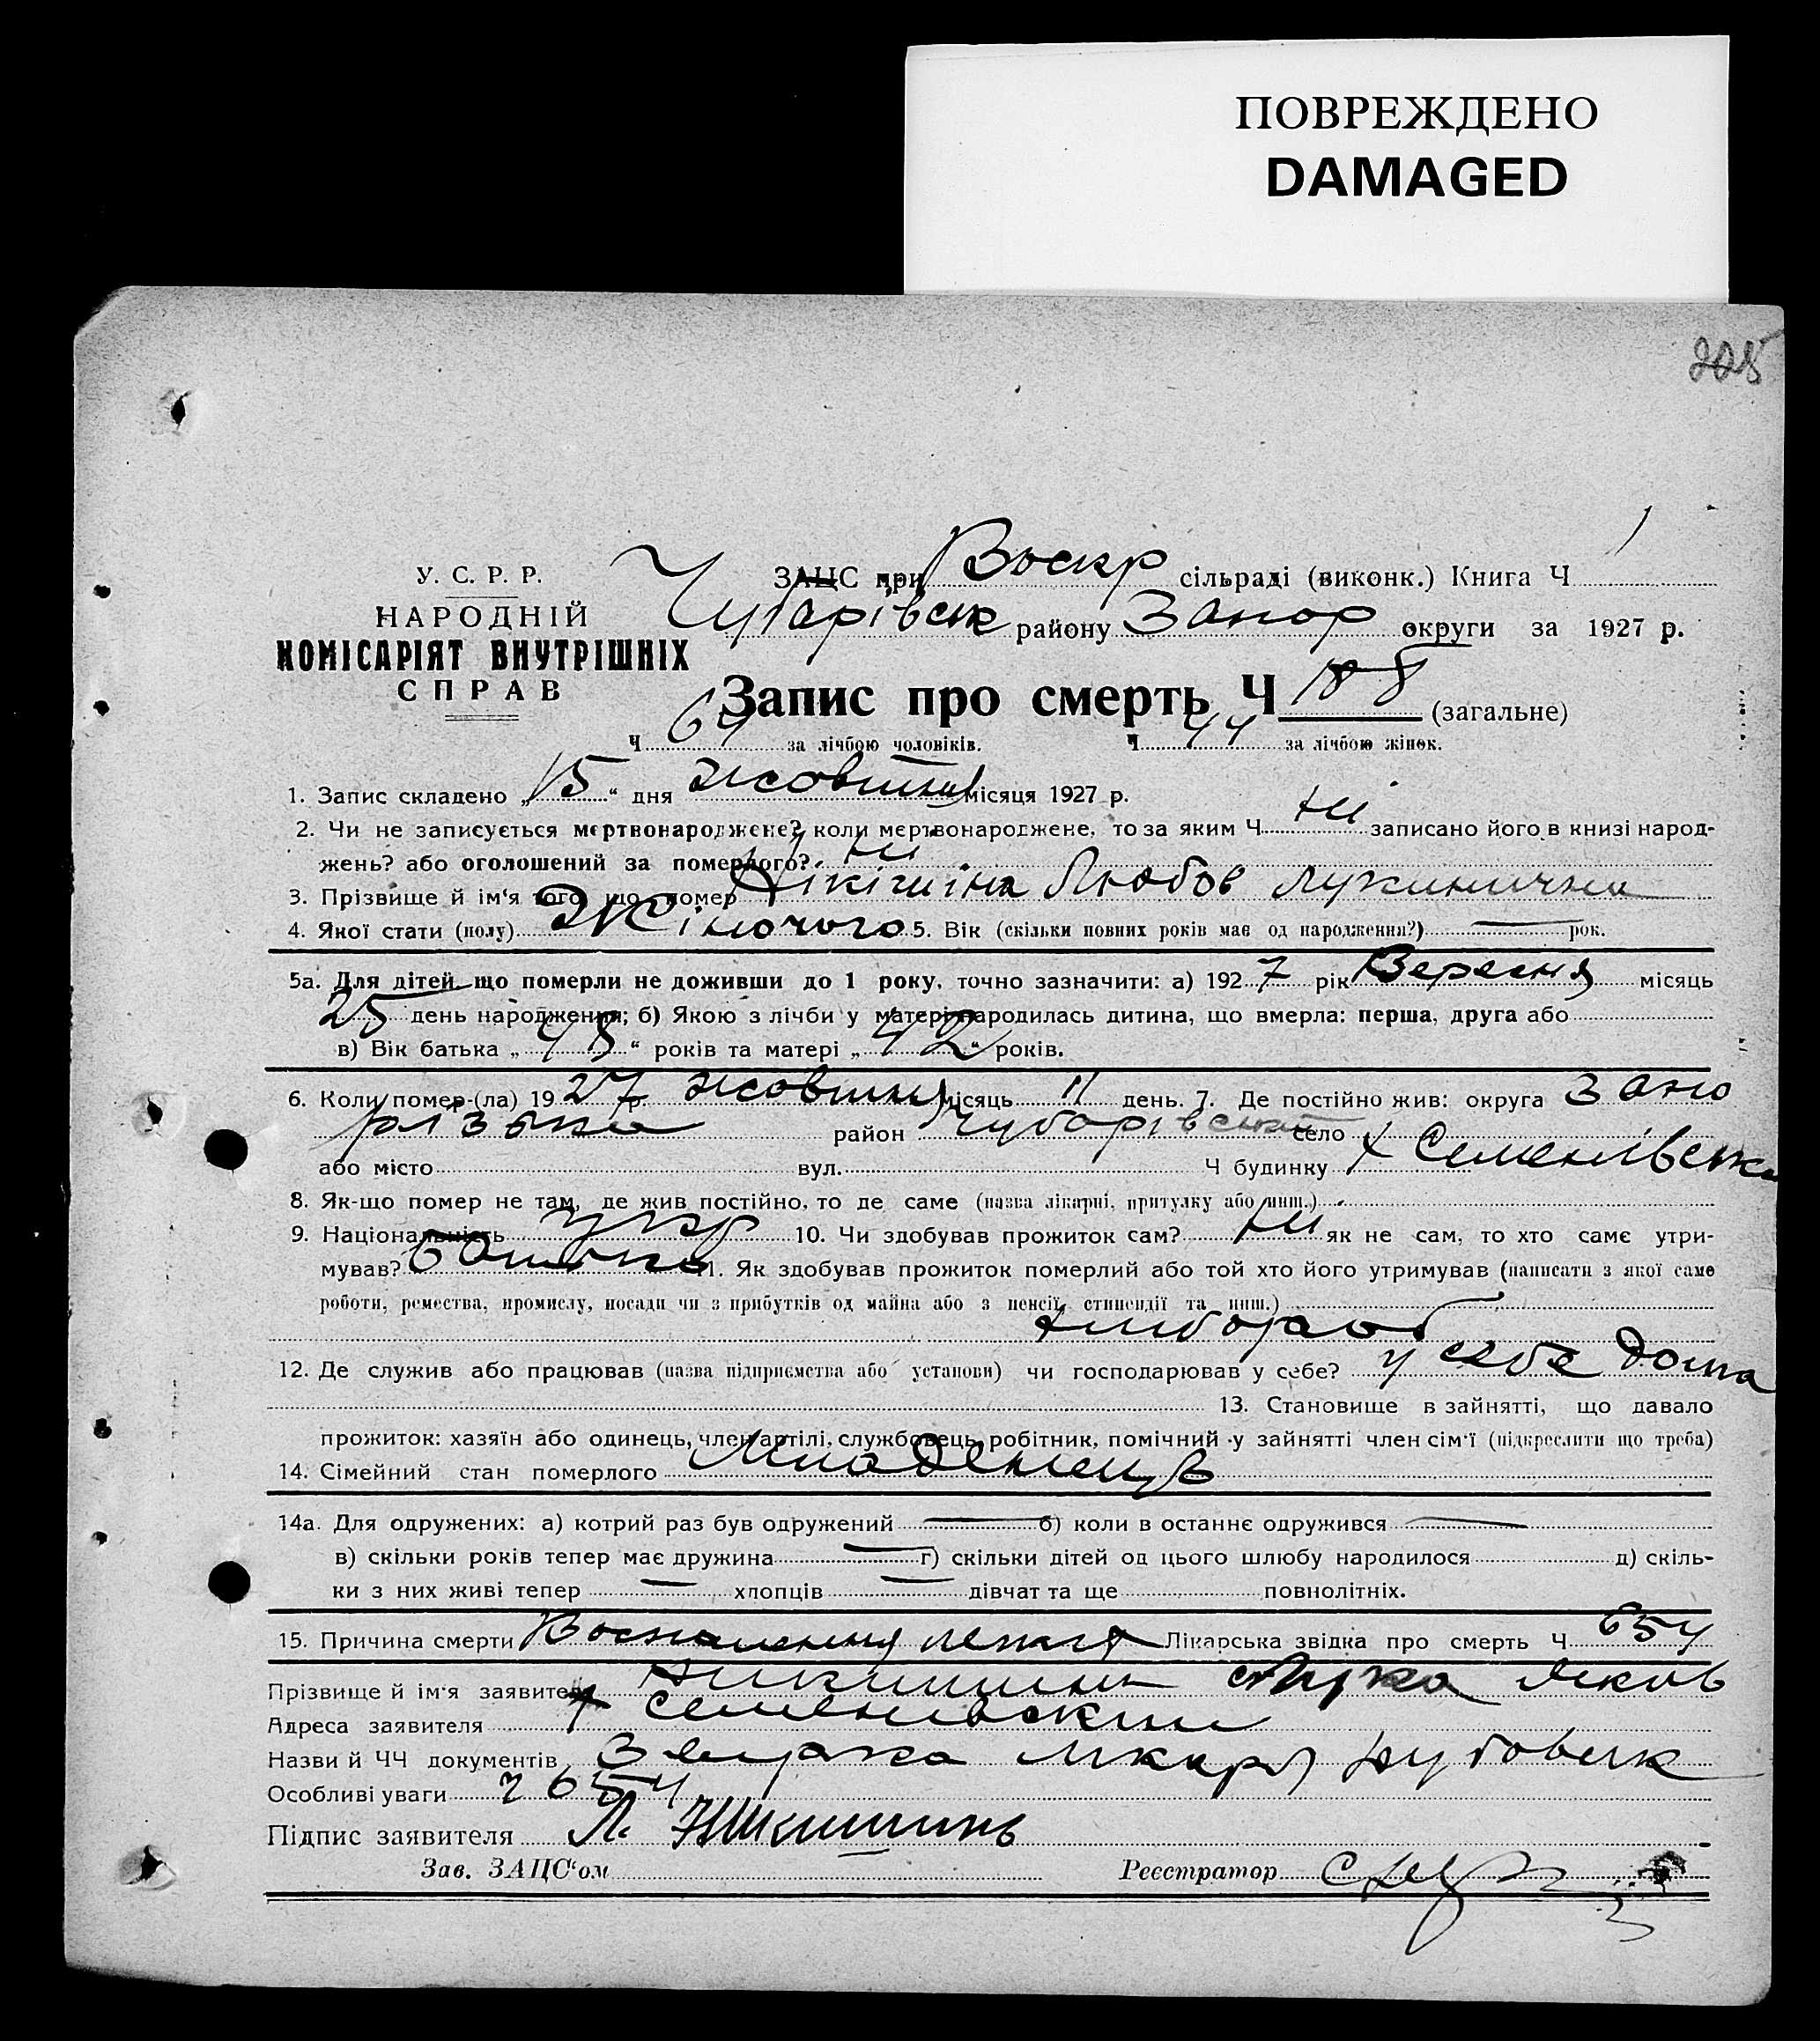 ПОВРЕЖДЕНО
DAMAGED
225
У. С. Р. Р.
НАРОДНІЙ
КОМІСАРІЯТ ВНУТРІШНІХ
СПРАВ
ЗАЦС при Воскр сільраді (виконк.) Книга Ч 1
Чубарівськ району Запор округи за 1927 р.
Запис про смерть Ч (загальне)
Ч 64 за лічбою чоловіків. Ч 44 за лічбою жінок.
1. Запис складено „15“ дня жовтня місяця 1927 р.
2. Чи не записується мертвонароджене? коли мертвонароджене, то за яким Ч ні записано його в книзі народ-
жень? або оголошений за померлого? ні
3. Прізвище й ім‘я того що помер Нікішіна Любов Лукинична
4. Якої статі (полу) Жіночого 5. Вік (скільки повних років має од народження?) — рок.
5а. Для дітей що померли не доживши до 1 року, точно зазначити: а) 1927 рік Вересня місяць
25 день народження; б) Якою з лічби у матері народилась дитина, що вмерла: перша, друга або
в) Вік батька „45“ років та матері „42“ років.
6. Коли помер-(ла) 1927 р. жовтня місяць 11 день. 7. Де постійно жив: округа Запо
різька район Чубарівський село
або місто вул. Ч будинку х Семенівська
8. Як-що помер не там, де жив постійно, то де саме (назва лікарні, притулку або инш.)
9. Національність укр 10. Чи здобував прожиток сам? ні як не сам, то хто саме утри-
мував? батько 11. Як здобував прожиток померлий або той хто його утримував (написати з якої саме
роботи, ремества, промислу, посади чи з прибутків од майна або з пенсії, стипендії та инш.)
хлібороб
12. Де служив або працював (назва підприємства або установи) чи господарював у себе? у себе дома
13. Становище в зайнятті, що давало
прожиток: хазяїн або одинець, член артілі, службовець, робітник, помічний у зайнятті член сім‘ї (підкреслити що треба)
14. Сімейний стан померлого Младенець
14а. Для одружених: а) котрий раз був одружений — б) коли в останнє одружився —
в) скільки років тепер має дружина — г) скільки дітей од цього шлюбу народилося д) скіль-
ки з них живі тепер — хлопців — дівчат та ще повнолітніх.
15. Причина смерти Воспаления легких Лікарська звідка про смерть Ч 654
Прізвище й ім‘я заявителя Никишин Лука Яков
Адреса заявителя х Семеновский
Назви й ЧЧ документів
Особливі уваги ч 654
Підпис заявителя Л. Никишинь
Зав. ЗАЦС‘ом Реєстратор